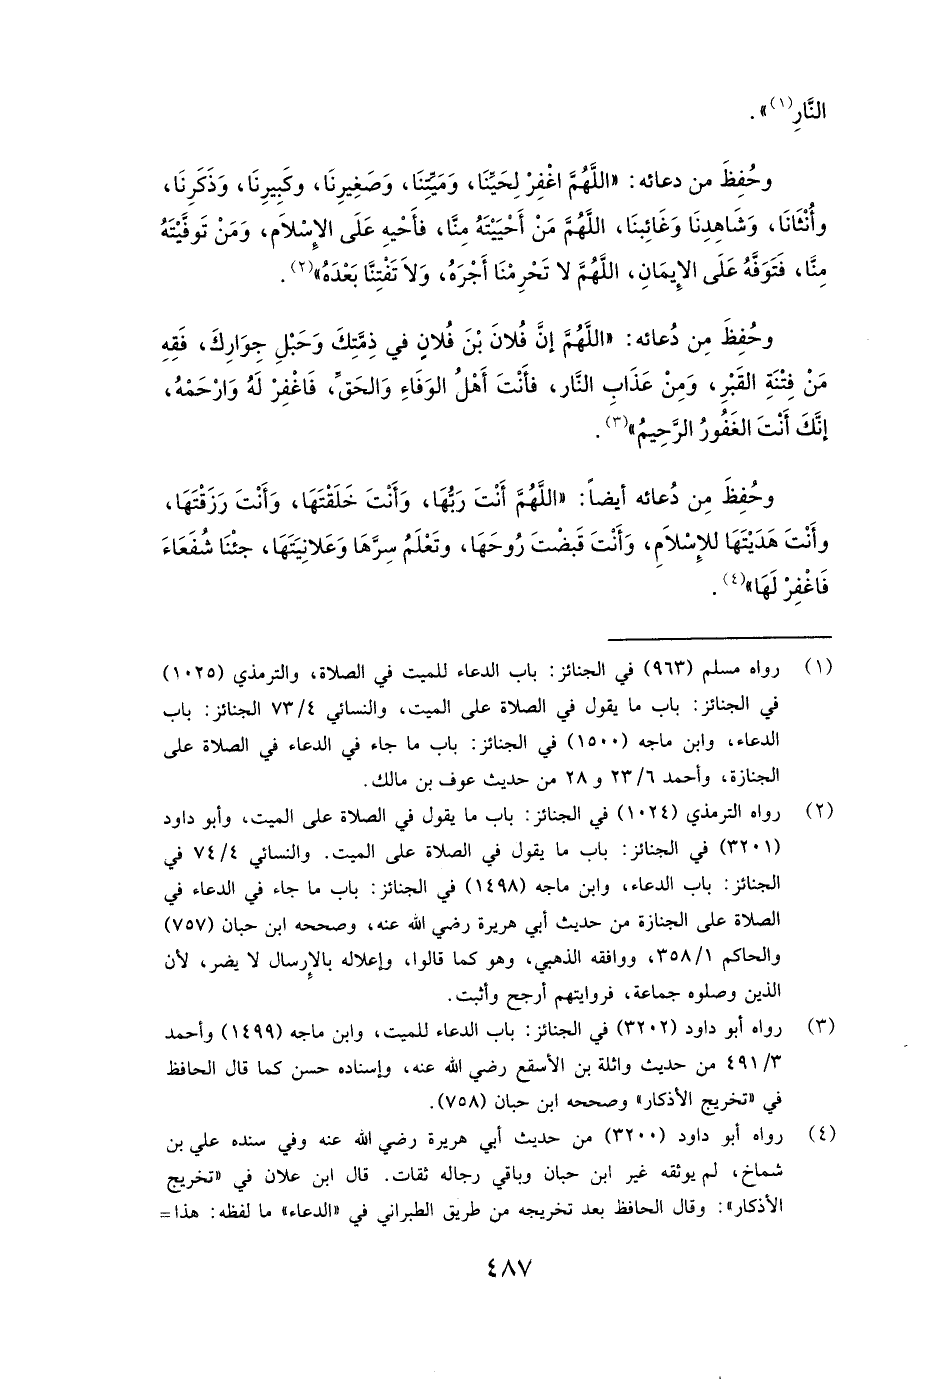 النَّارِ(١)» .
وحُفِظَ من دعائه: «اللَّهُمَّ اغْفِرْ لِحَيِّنَا، وَمَيِّتِنَا، وَصَغِيرِنَا، وكَبِيرِنَا، وَذَكَرِنَا،
وأُنْثَانَا، وَشَاهِدِنَا وَغَائِبنَا، اللَّهُمَّ مَنْ أَحْيَيْتَهُ مِنَّا، فأَحْيِهِ عَلَى الإِسْلَام، وَمَنْ تَوفَّيْتَهُ
مِنَّا، فَتَوَفَّهُ عَلَى الإِيمَانِ، اللَّهُمَّ لا تَحْرِمْنَا أَجْرَهُ، وَلاَ تَفْتِنَّا بَعْدَهُ»(٢) .
وحُفِظَ مِن دُعائه: «اللَّهُمَّ إنَّ فُلانَ بْنَ فُلانٍ في ذِمَّتِكَ وَحَبْلِ جِوَارِكَ، فَقِهِ
مَنْ فِتْنَةِ القَبْرِ، وَمِنْ عَذَابِ النَّار، فأَنْتَ أَهْلُ الوَفَاءِ وَالحَقِّ، فَاغْفِرْ لَهُ وَارْحَمْهُ،
إنَّكَ أَنْتَ الغَفُورُ الرَّحِيمُ»(٣) .
وحُفِظَ مِن دُعائه أيضاً: «اللَّهُمَّ أَنْتَ رَبُّهَا، وَأَنْتَ خَلَقْتَهَا، وَأَنْتَ رَزَقْتَهَا،
وأَنْتَ هَدَيْتَهَا للإِسْلَامِ، وَأَنْتَ قَبَضْتَ رُوحَهَا، وتَعْلَمُ سِرَّهَا وَعَلانِيَتَهَا، جئْنَا شُفَعَاءَ
فَاغْفِرْ لَهَا»(٤) .
(١) رواه مسلم (٩٦٣) في الجنائز: باب الدعاء للميت في الصلاة، والترمذي (١٠٢٥)
في الجنائز: باب ما يقول في الصلاة على الميت، والنسائي ٧٣/٤ الجنائز: باب
الدعاء، وابن ماجه (١٥٠٠) في الجنائز: باب ما جاء في الدعاء في الصلاة على
الجنازة، وأحمد ٢٣/٦ و ٢٨ من حديث عوف بن مالك.
(٢) رواه الترمذي (١٠٢٤) في الجنائز: باب ما يقول في الصلاة على الميت، وأبو داود
(٣٢٠١) في الجنائز: باب ما يقول في الصلاة على الميت. والنسائي ٧٤/٤ في
الجنائز: باب الدعاء، وابن ماجه (١٤٩٨) في الجنائز: باب ما جاء في الدعاء في
الصلاة على الجنازة من حديث أبي هريرة رضي الله عنه، وصححه ابن حبان (٧٥٧)
والحاكم ٣٥٨/١، ووافقه الذهبي، وهو كما قالوا، وإعلاله بالإرسال لا يضر، لأن
الذين وصلوه جماعة، فروايتهم أرجح وأثبت.
(٣) رواه أبو داود (٣٢٠٢) في الجنائز: باب الدعاء للميت، وابن ماجه (١٤٩٩) وأحمد
٤٩١/٣ من حديث واثلة بن الأسقع رضي الله عنه، وإسناده حسن كما قال الحافظ
في «تخريج الأذكار» وصححه ابن حبان (٧٥٨).
(٤) رواه أبو داود (٣٢٠٠) من حديث أبي هريرة رضي الله عنه وفي سنده علي بن
شماخ، لم يوثقه غير ابن حبان وباقي رجاله ثقات. قال ابن علان في «تخريج
الأذكار»: وقال الحافظ بعد تخريجه من طريق الطبراني في «الدعاء» ما لفظه: هذا=
٤٨٧